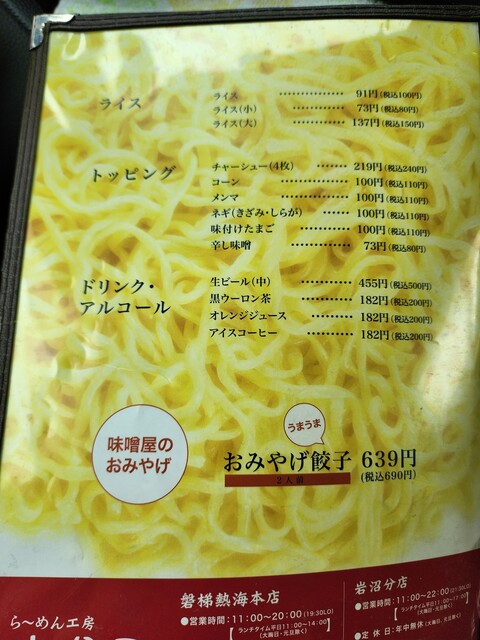 ライス
ライス ………… 91円(税込100円)
ライス(小) ………… 73円(税込80円)
ライス(大) ………… 137円(税込150円)
トッピング
チャーシュー(4枚) …… 219円(税込240円)
コーン ………… 100円(税込110円)
メンマ ………… 100円(税込110円)
ネギ(きざみ・しらが) …… 100円(税込110円)
味付けたまご ………… 100円(税込110円)
辛し味噌 ………… 73円(税込80円)
ドリンク・
アルコール
生ビール(中) ………… 455円(税込500円)
黒ウーロン茶 ………… 182円(税込200円)
オレンジジュース ……… 182円(税込200円)
アイスコーヒー ……… 182円(税込200円)
味噌屋の
おみやげ
うまうま
おみやげ餃子 639円
2人前
(税込690円)
らーめん工房
磐梯熱海本店
●営業時間:11:00〜20:00(19:30LO)
ランチタイム平日11:00〜14:00
(大晦日・元旦除く)
岩沼分店
●営業時間:11:00〜22:00(21:30LO)
ランチタイム平日11:00〜17:00
(大晦日・元旦除く)
●定休日:年中無休